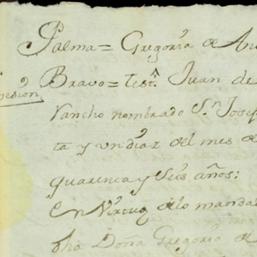 Palma = Gregoria de
Bravo = test.º Juan de
Rancho nombrado S.n Josep
ta y un dias del mes de
quarenta y seis años:
En Virtud de lo manda
dho Doña Gregoria de